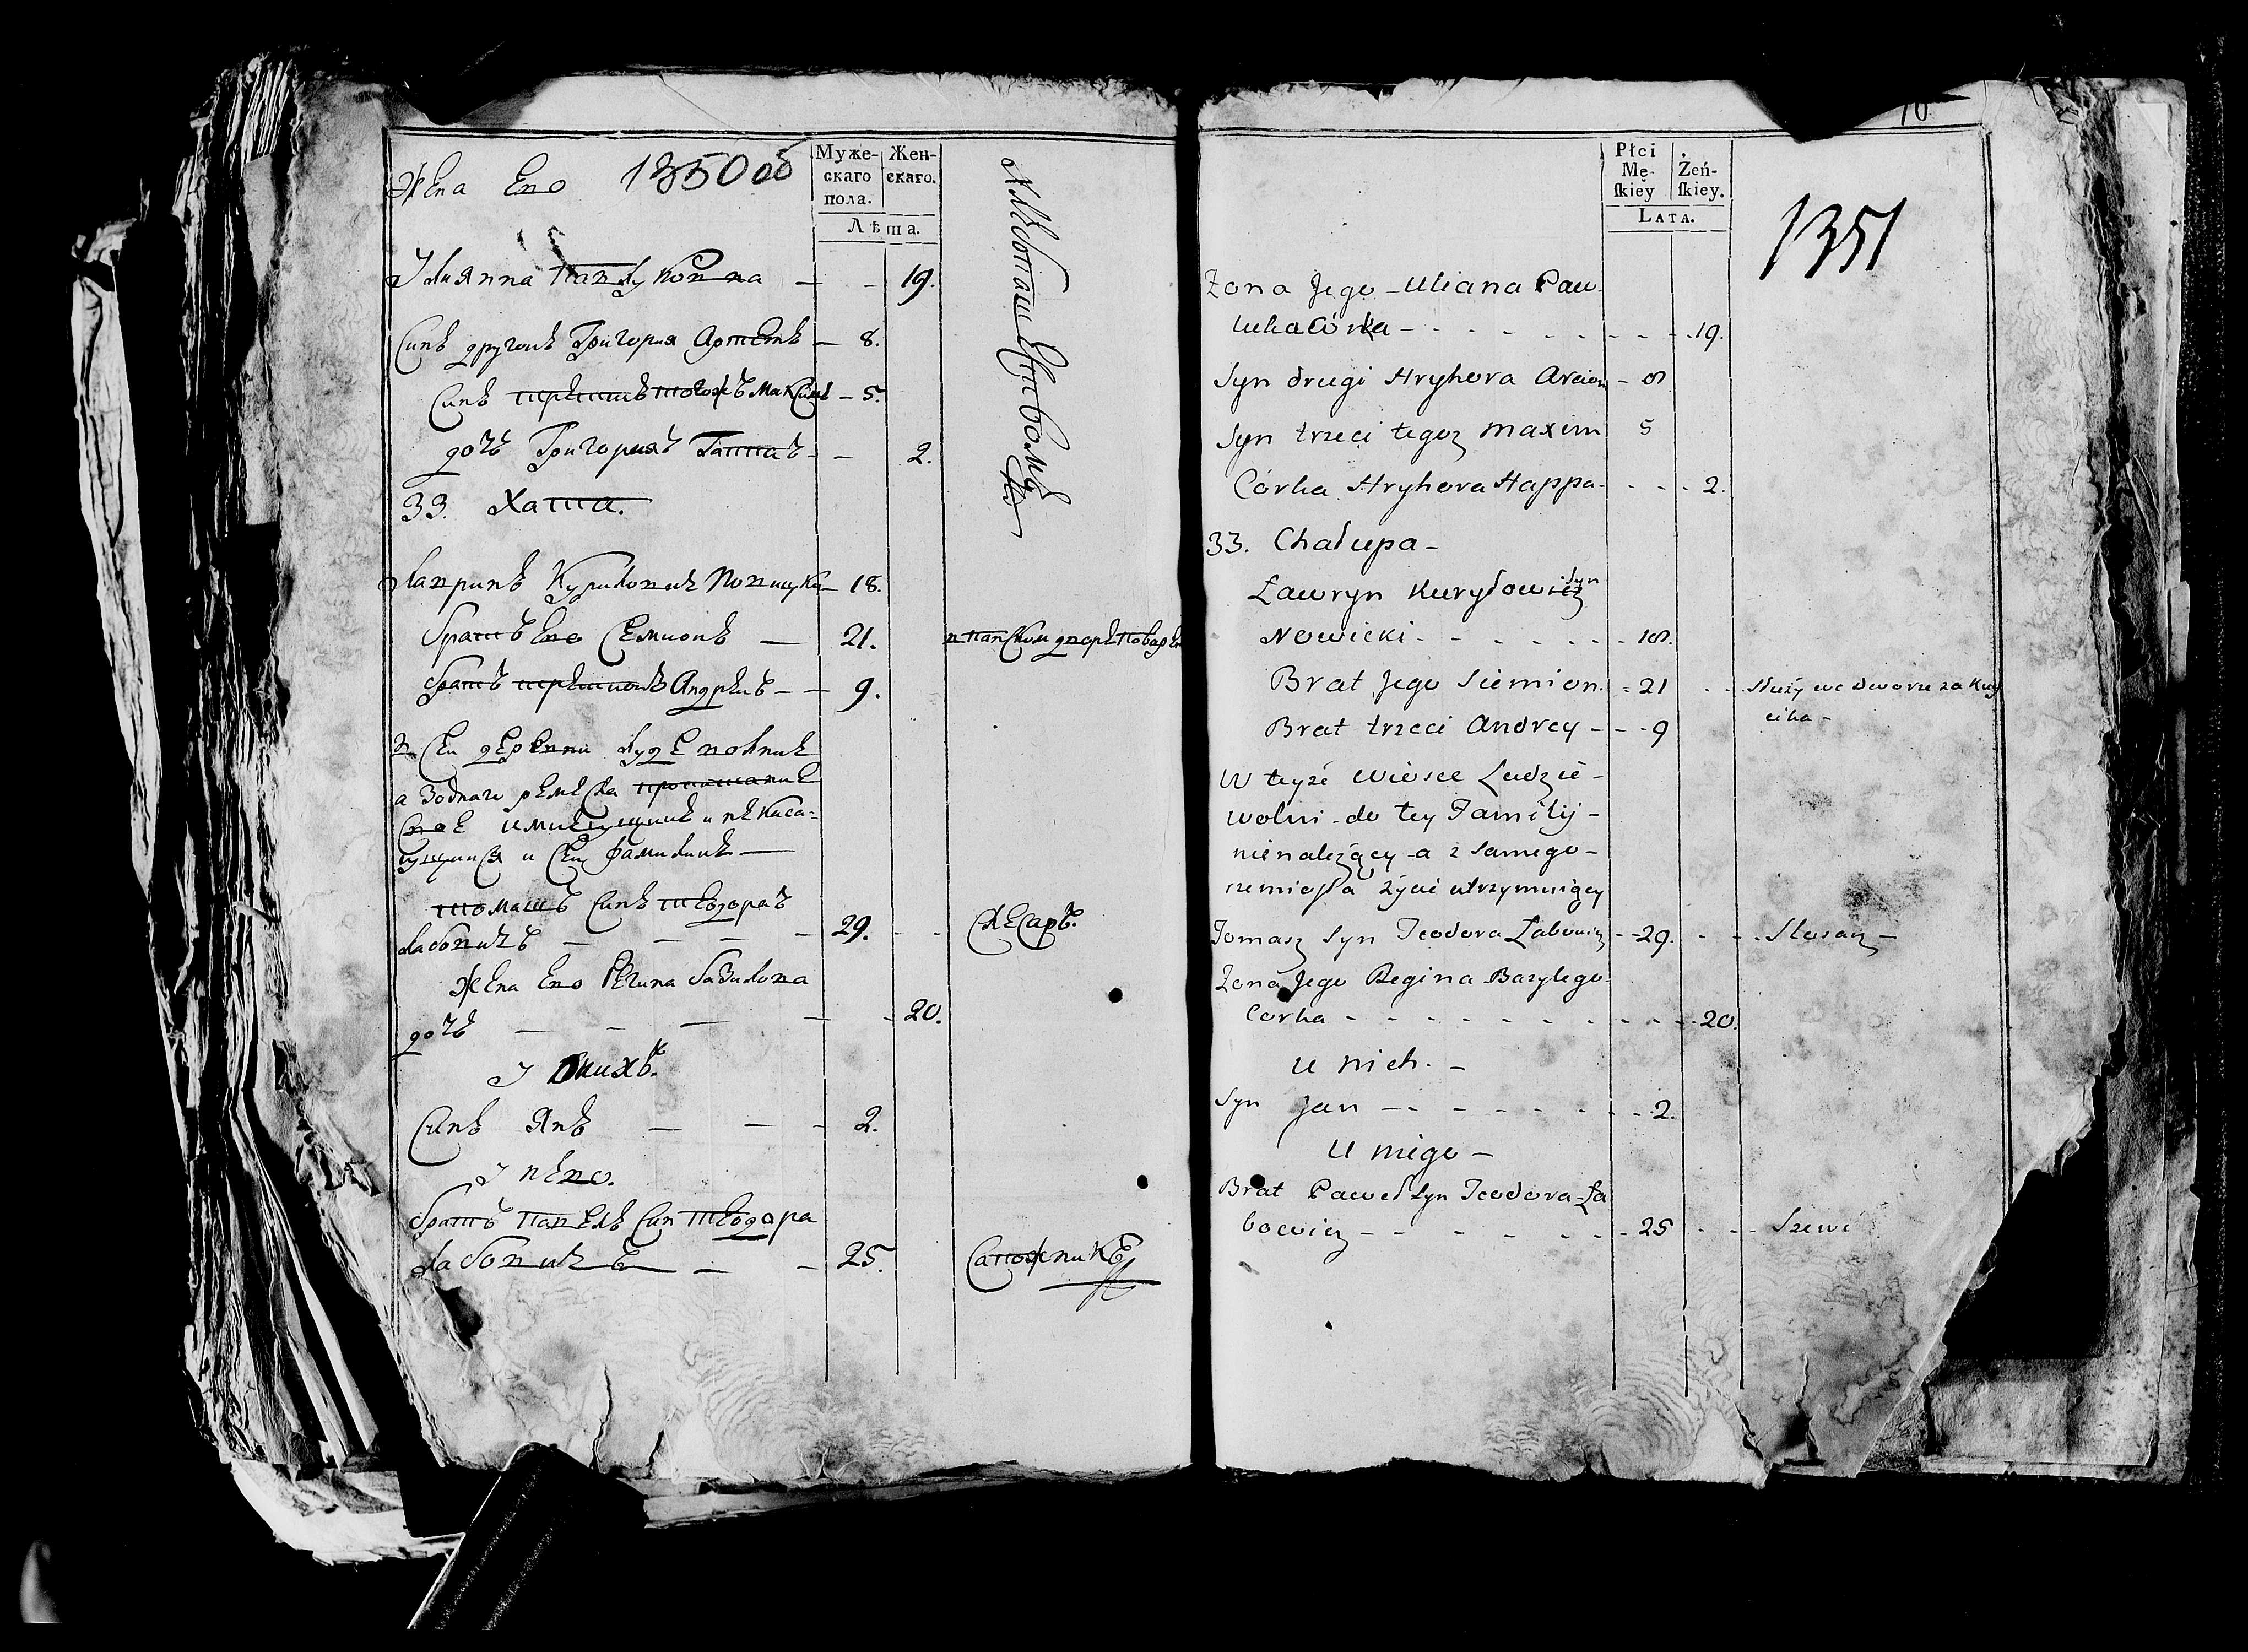 Жена Ево 1350об
Муже-
скаго
пола.
Жен-
скаго.
Лѣта.
Улиянна Павлуковна — - 19.
Синъ другоиъ Григория Артемъ — 8.
Синъ третиъ тогожъ Максимъ — 5.
дочъ Григорияъ Гаппаъ - — 2.
33. Хата.
Лавринъ Куриловичъ — 18.
братъ Ево Семионъ — 21.
в панском дворе поваръ
братъ третиоиъ Андреиъ — — 9.
в сеи деревни
а
имиющиие и не каса=
ющиися и сеи фамилиие —
Томашъ Синъ Теодораъ
Лабовичъ — — — — 29. - - Слесаръ.
Жена Ево Регина Базилова
дочъ — — — — - 20.
У нихъ.
Синъ Янъ — — - 2.
У нево.
братъ Павелъ Син Теодора
Лабовичъ — — 25. Сапожникъ
10
Płci
Mę-
ſkiéy
Żeń-
ſkiey.
LATA.
1351
Żona Jego - Uliana Paw
lukaCórka - - - - 19.
Syn drugi Hryhora Arciom - 8
Syn trzeci tegoż Maxim 5
Córka Hryhora Happa - - - 2.
33. Chałupa -
Ławryn Kuryłowicz syn
Nowicki - - - - - 18.
Brat Jego Siemion. - 21 - - Służy we dworze za Kuch
cika -
Brat trzeci Andrey - - - 9
W teyże wiosce Ludzie -
wolni - do tey Familij -
nienależący - a z samego -
rzemiosła życie utrzymuiący
Tomasz Syn Teodora Łabowicz - - 29. - - Slosarz -
Żona Jego Regina Bazylego -
Corka - - - - - - - - 20.
U nich. -
Syn Jan - - - - - - 2.
U niego -
Brat Paweł Syn Teodora - Ła
bowicz - - - - - - 25 - - Szewc